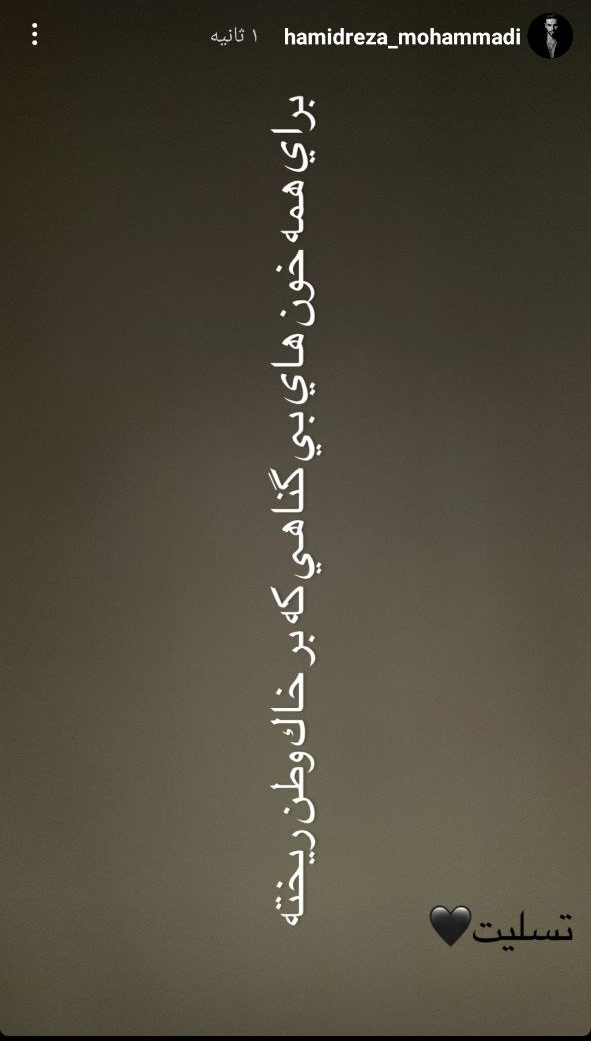 hamidreza_mohammadi ۱ ثانیه
براي همه خون هاي بي گناهي كه بر خاك وطن ريخته
تسليت🖤